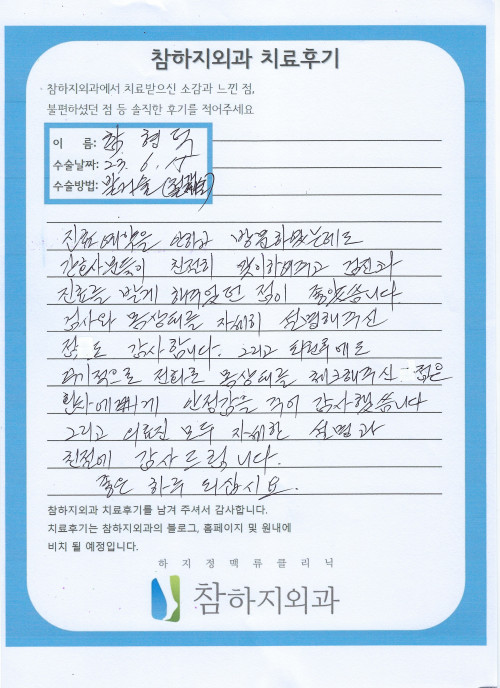 참하지외과 치료후기
· 참하지외과에서 치료받으신 소감과 느낀 점,
불편하셨던 점 등 솔직한 후기를 적어주세요
이 름: 형
수술날짜: 23. 6.
수술방법: 발거술
진료예약을 안하고 방문하였는데도
간호사분들이 친절히 맞이하여주고 검진과
진료를 받게 해주었던 점이 좋았습니다
검사와 몸상태를 자세히 설명해주신
점도 감사합니다. 그리고 치료후에도
주기적으로 전화로 몸상태를 체크해주신 점은
환자에게 안정감을 주어 감사했습니다
그리고 의료진 모두 자세한 설명과
친절에 감사드립니다.
좋은 하루 되십시요.
참하지외과 치료후기를 남겨 주셔서 감사합니다.
치료후기는 참하지외과의 블로그, 홈페이지 및 원내에
비치 될 예정입니다.
하지정맥류클리닉
참하지외과